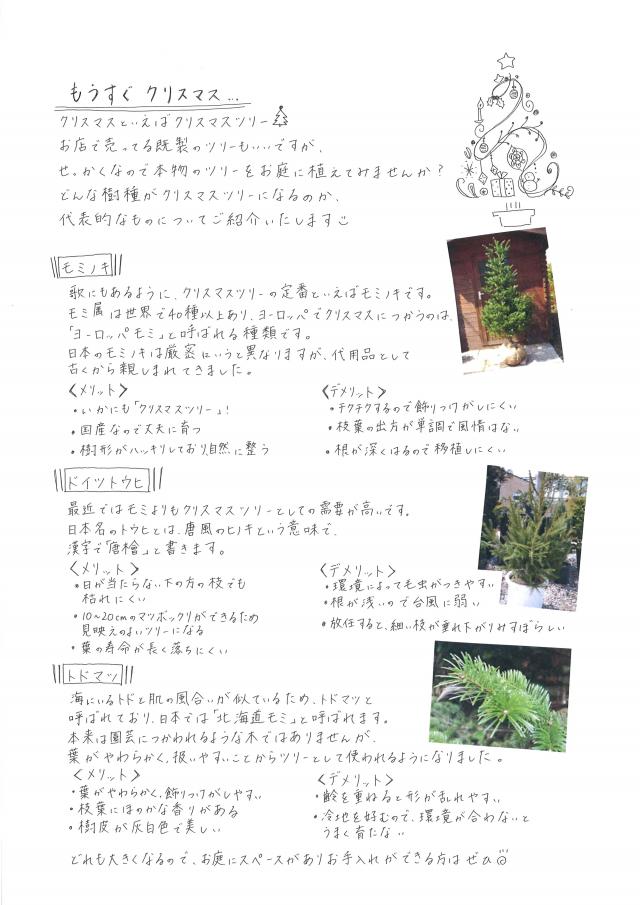 もうすぐ クリスマス…
クリスマスといえばクリスマスツリー
お店で売ってる既製のツリーもいいですが、
せっかくなので本物のツリーをお庭に植えてみませんか？
どんな樹種がクリスマスツリーになるのか、
代表的なものについてご紹介いたします
モミノキ
歌にもあるように、クリスマスツリーの定番といえばモミノキです。
モミ属は世界で40種以上あり、ヨーロッパでクリスマスにつかうのは、
「ヨーロッパモミ」と呼ばれる種類です。
日本のモミノキは厳密にいうと異なりますが、代用品として
古くから親しまれてきました。
〈メリット〉
・いかにも「クリスマスツリー」！
・国産なので丈夫に育つ
・樹形がハッキリしており自然に整う
〈デメリット〉
・チクチクするので飾りつけがしにくい
・枝葉の出方が単調で風情はない
・根が深くはるので移植しにくい
ドイツトウヒ
最近ではモミよりもクリスマスツリーとしての需要が高いです。
日本名のトウヒとは、唐風のヒノキという意味で、
漢字で「唐檜」と書きます。
〈メリット〉
・日が当たらない下の方の枝でも
枯れにくい
・10~20cmのマツボックリができるため
見映えのよいツリーになる
・葉の寿命が長く落ちにくい
〈デメリット〉
・環境によって毛虫がつきやすい
・根が浅いので台風に弱い
・放任すると、細い枝が垂れ下がりみすぼらしい
トドマツ
海にいるトドと肌の風合いが似ているため、トドマツと
呼ばれており、日本では「北海道モミ」と呼ばれます。
本来は園芸につかわれるような木ではありませんが、
葉がやわらかく、扱いやすいことからツリーとして使われるようになりました。
〈メリット〉
・葉がやわらかく、飾りつけがしやすい
・枝葉にほのかな香りがある
・樹皮が灰白色で美しい
〈デメリット〉
・齢を重ねると形が乱れやすい
・冷地を好むので、環境が合わないと
うまく育たない
どれも大きくなるので、お庭にスペースがありお手入れができる方はぜひ